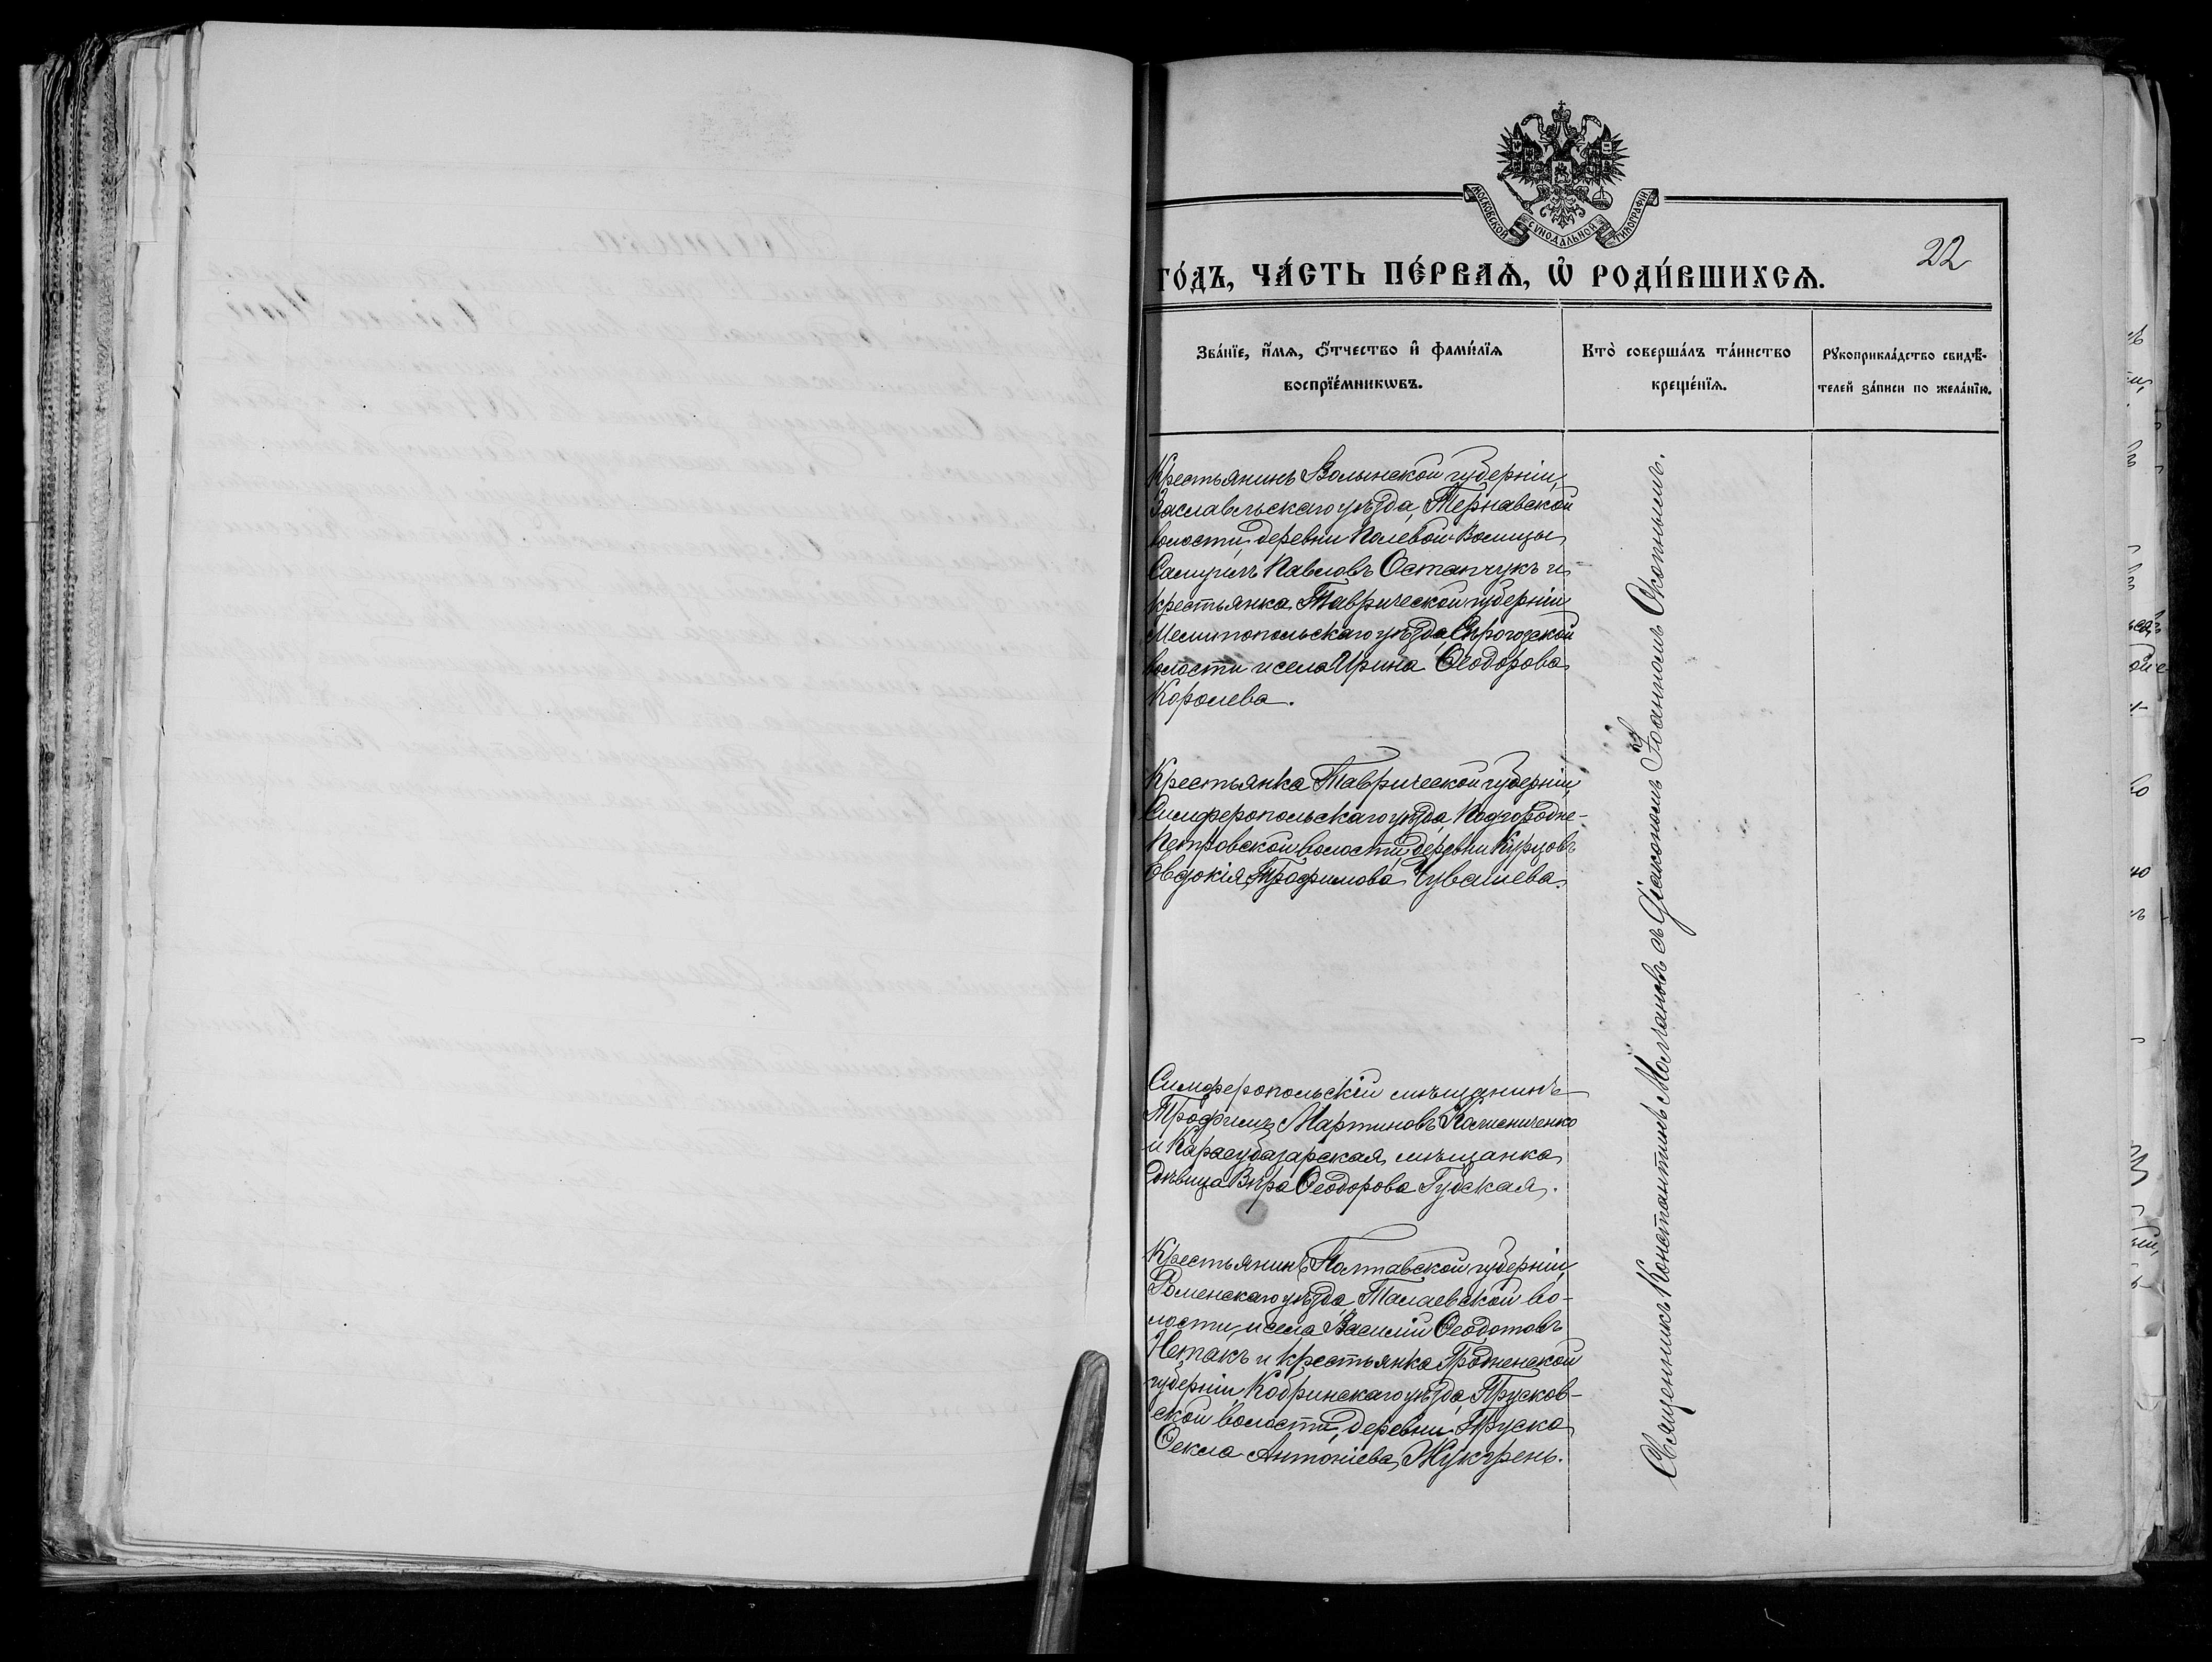 МОСКОВСКОЙ СѴНОДАЛЬНОЙ ТИПОГРАФІИ
22
го́дъ, ча́сть пе́рваѧ, ѡ҆ роди́вшихсѧ.
Зва́нїе, и҆́мѧ, ѻ҆́тчество и҆ фами́лїѧ
воспрїе́мникѡвъ.
Кто̀ соверша́лъ та́инство
креще́нїѧ.
Рꙋкоприкла́дство свидѣ́-
телей за́писи по жела́нїю.
Крестьянинъ Волынской губерніи,
Заславльскаго уѣзда, Тернавской
волости, деревни Полевой-Волицы,
Самуилъ Павловъ Остапчукъ и
крестьянка Таврической губерніи
Мелитопольскаго уѣзда, Сѣрогозской
волости и села Ирина Ѳеодорова
Королева.
Крестьянка Таврической губерніи
Симферопольскаго уѣзда, Подгородне-
Петровской волости деревни Курцовъ
Евдокія Трофимова Чувашева.
Симферопольскій мѣщанинъ
Трофимъ Мартиновъ Калениченко
и Карасубазарская мѣщанка
дѣвица Вѣра Ѳеодорова Гудская.
Крестьянинъ Полтавской губерніи,
Роменскаго уѣзда Талаевской во-
лости, и села Василій Ѳеодотовъ
Нетакъ и крестьянка Гродненской
губерніи Кобринскаго уѣзда, Прусков-
ской волости, деревни Пруска
Ѳекла Антоніева Жукорень.
Священникъ Константинъ Молчановъ съ Діакономъ Іоанномъ Скопнымъ.